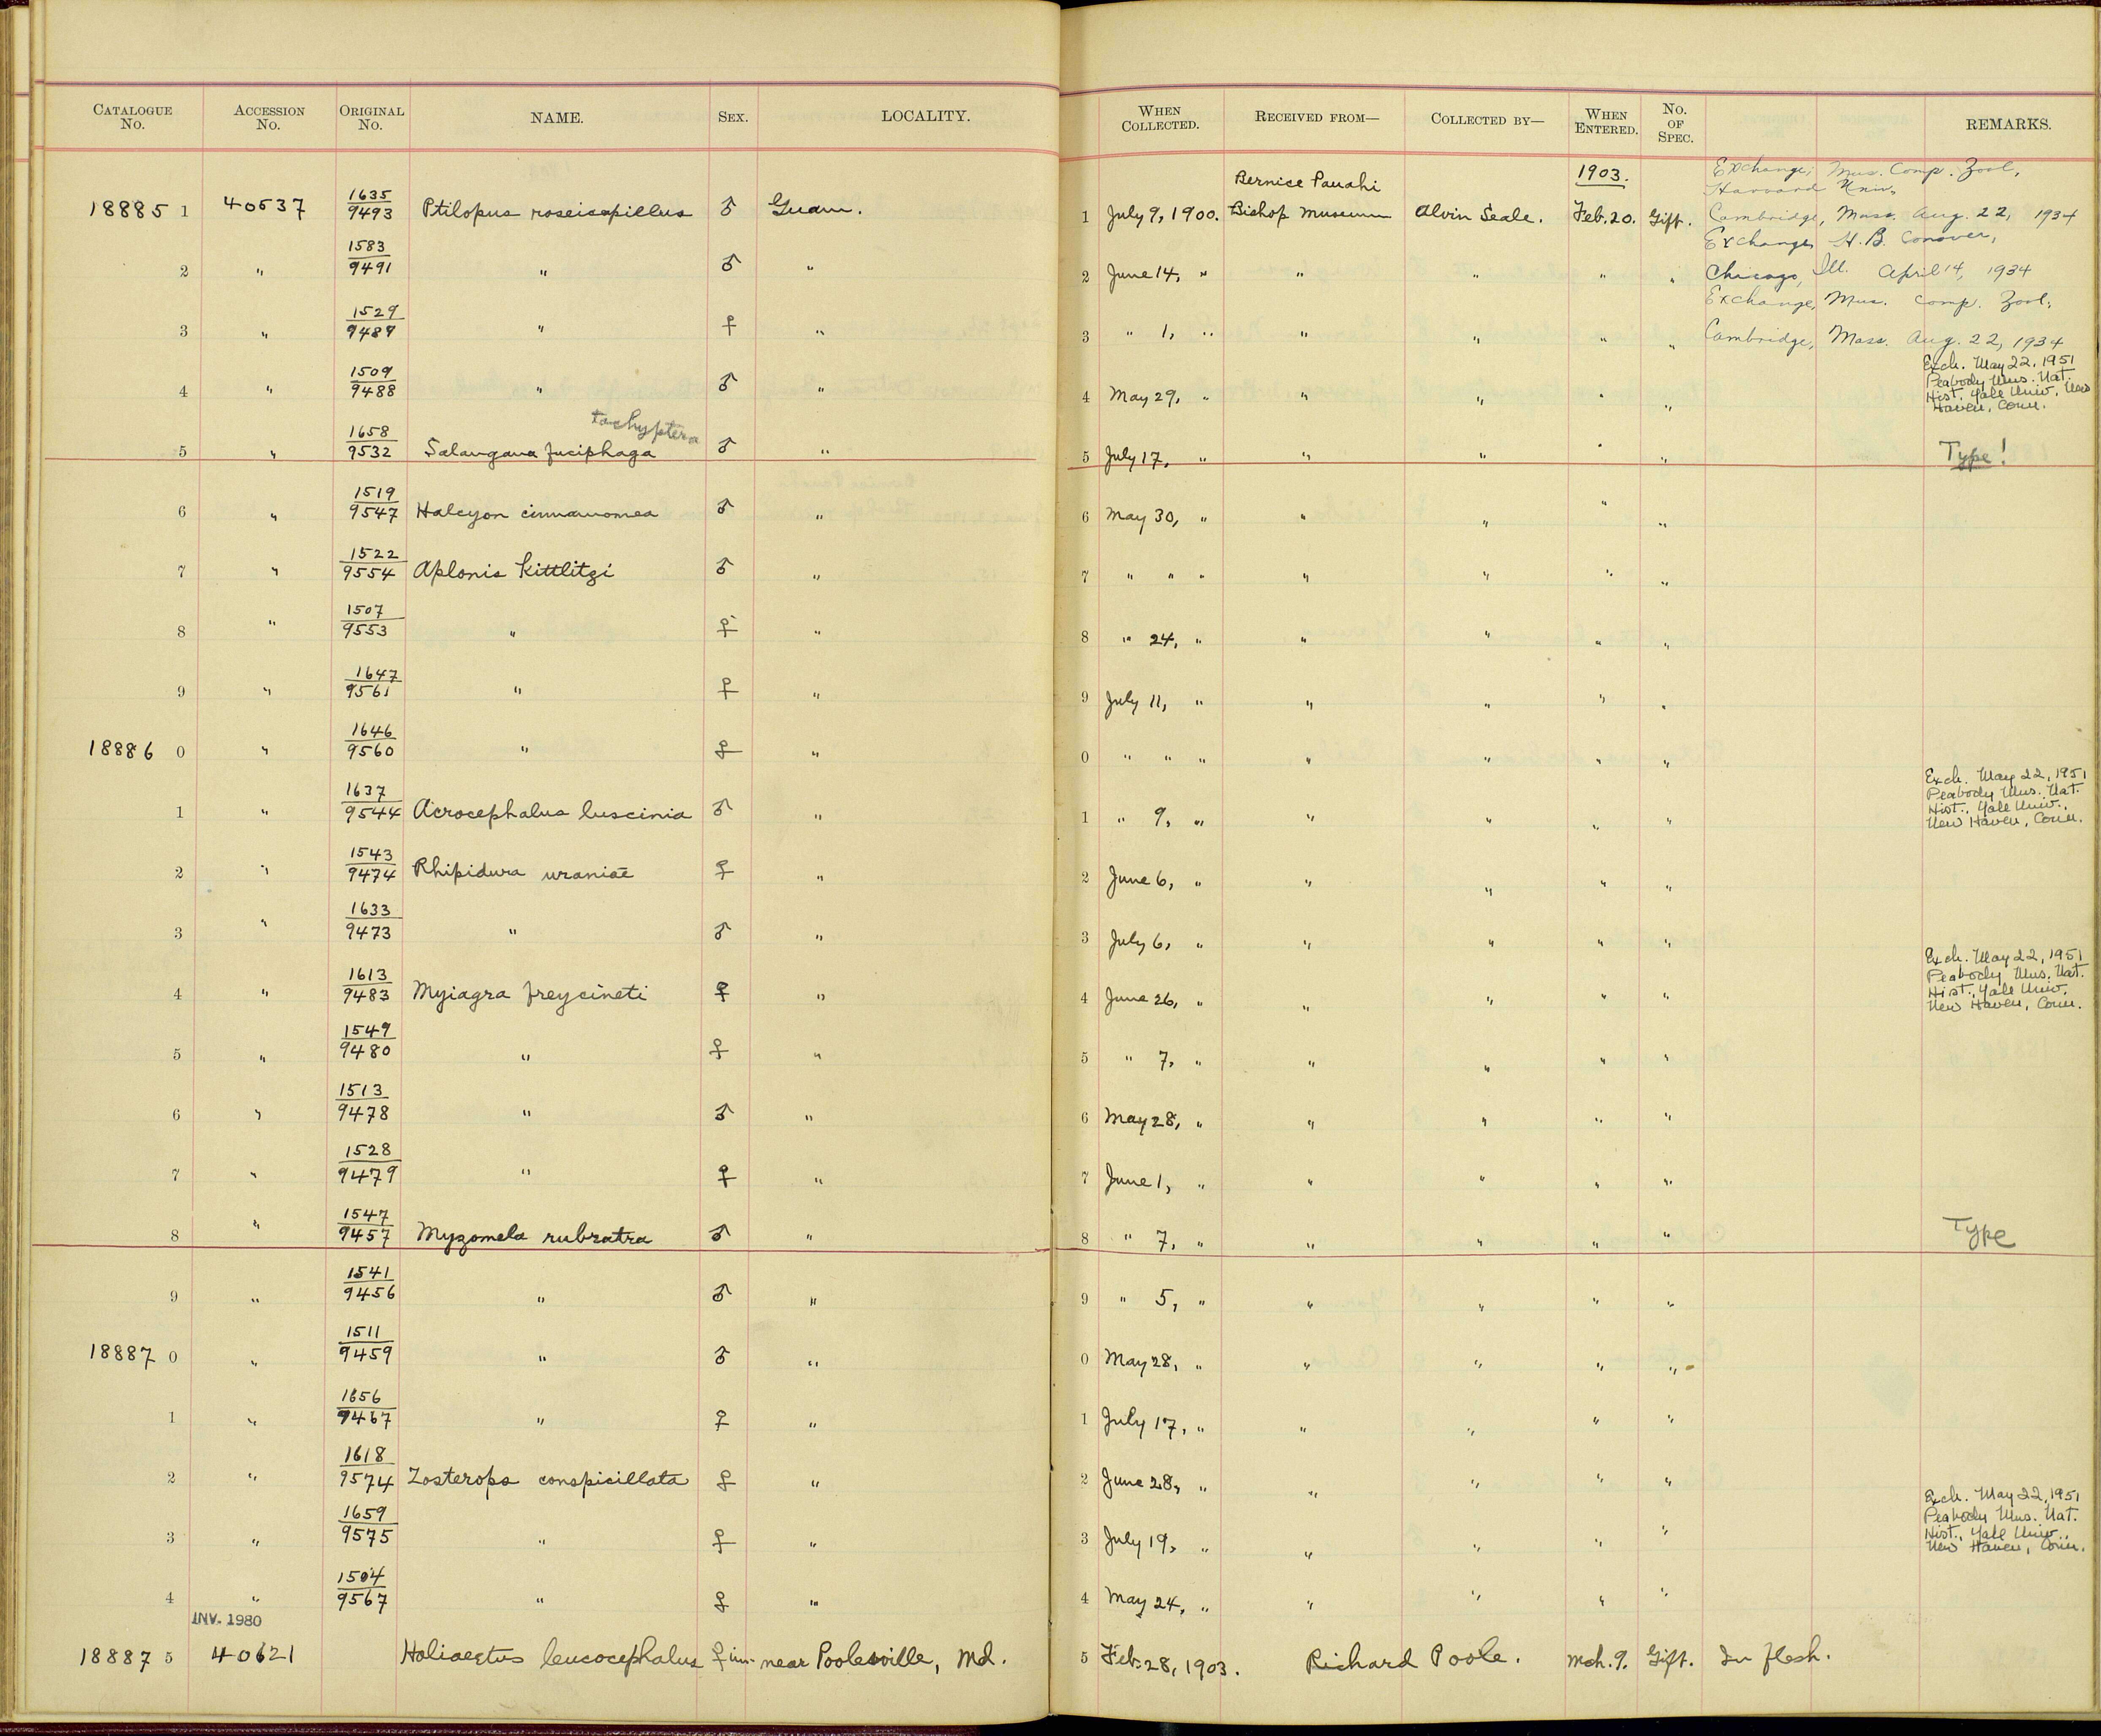 CATALOGUE No. ACCESSION No. ORIGINAL No. NAME. SEX. LOCALITY. WHEN COLLECTED. RECEIVED FROM— COLLECTED BY— WHEN ENTERED. No. OF SPEC. REMARKS.
Bernice Pauahi 1903. Exchange, Mus. Comp. Zool,
Harvard Univ.
18885 1 40537 1635/9493 Ptilopus roseicapillus ♂ Guam. 1 July 9, 1900. Bishop Museum Alvin Seale. Feb. 20. Gift. Cambridge, Mass. Aug. 22, 1934
Exchange, H. B. Conover,
2 " 1583/9491 " ♂ " 2 June 14, " " " " " Chicago, Ill. April 14, 1934
Exchange, Mus. Comp. Zool,
3 " 1529/9487 " ♀ " 3 " 1, " " " " " Cambridge, Mass. Aug. 22, 1934
4 " 1509/9488 " ♂ " 4 May 29, " " " " " Exch. May 22, 1951
Peabody Mus. Nat.
Hist. Yale Univ., New
Haven, Conn.
tachyptera
5 " 1658/9532 Salangana fuciphaga ♂ " 5 July 17, " " " " " Type!
6 " 1519/9547 Halcyon cinnamomea ♂ " 6 May 30, " " " " "
7 " 1522/9554 Aplonis Kittlitzi ♂ " 7 " " " " " " "
8 " 1507/9553 " ♀ " 8 " 24, " " " " "
9 " 1647/9561 " ♀ " 9 July 11, " " " " "
18886 0 " 1646/9560 " ♀ " 0 " " " " " " "
1 " 1637/9544 Acrocephalus luscinia ♂ " 1 " 9, " " " " " Exch. May 22, 1951
Peabody Mus. Nat.
Hist., Yale Univ.,
New Haven, Conn.
2 " 1543/9474 Rhipidura uraniae ♀ " 2 June 6, " " " " "
3 " 1633/9473 " ♂ " 3 July 6, " " " " "
4 " 1613/9483 Myiagra freycineti ♀ " 4 June 26, " " " " " Exch. May 22, 1951
Peabody Mus. Nat.
Hist., Yale Univ.
New Haven, Conn.
5 " 1549/9480 " ♀ " 5 " 7, " " " " "
6 " 1513/9478 " ♂ " 6 May 28, " " " " "
7 " 1528/9479 " ♀ " 7 June 1, " " " " "
8 " 1547/9457 Myzomela rubratra ♂ " 8 " 7, " " " " " Type
9 " 1541/9456 " ♂ " 9 " 5, " " " " "
18887 0 " 1511/9459 " ♂ " 0 May 28, " " " " "
1 " 1656/9467 " ♀ " 1 July 17, " " " " "
2 " 1618/9574 Zosterops conspicillata ♀ " 2 June 28, " " " " "
3 " 1659/9575 " ♀ " 3 July 19, " " " " " Exch. May 22, 1951
Peabody Mus. Nat.
Hist., Yale Univ.,
New Haven, Conn.
4 " 1504/9567 " ♀ " 4 May 24, " " " " "
INV. 1980
18887 5 40621 Haliaeetus leucocephalus ♀ im. near Poolesville, Md. 5 Feb. 28, 1903. Richard Poole. Mch. 9. Gift. In flesh.